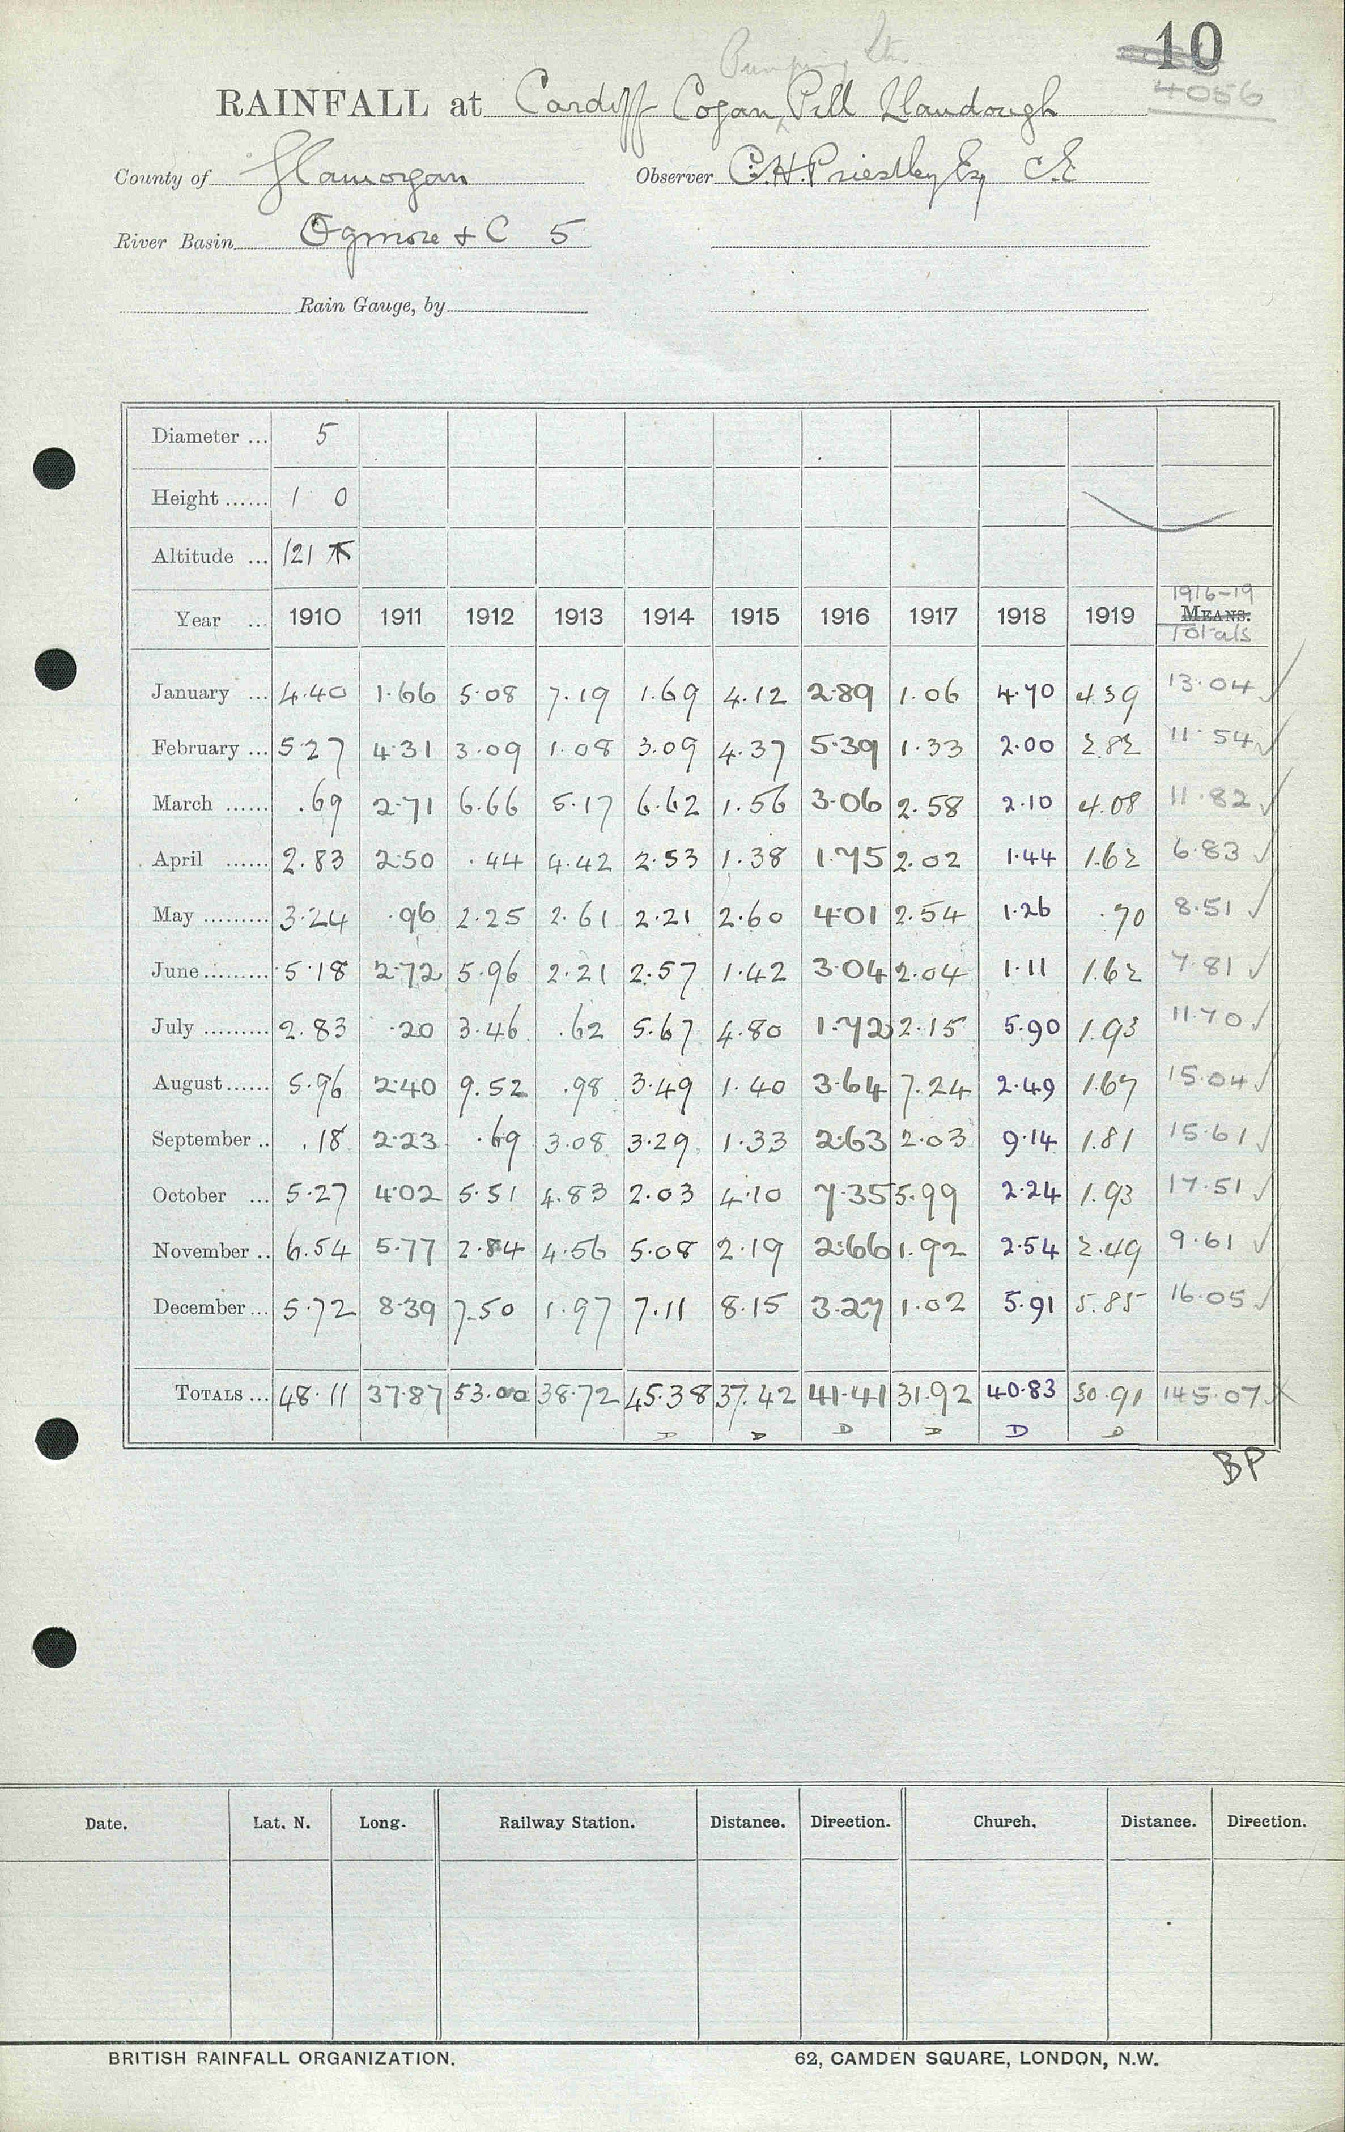 10
4056
Pumping Stn.
RAINFALL at Cardiff Cogan Pill Llandough
County of Glamorgan Observer C.H. Priestley Esq C.E
River Basin Ogmore & C 5
Rain Gauge, by
Diameter ... 5
Height ...... 1 0
Altitude ... 121
Year ... 1910 1911 1912 1913 1914 1915 1916 1917 1918 1919 1916-19 MEANS. Totals
January ... 4.40 1.66 5.08 7.19 1.69 4.12 2.89 1.06 4.70 4.39 13.04
February ... 5.27 4.31 3.09 1.08 3.09 4.37 5.39 1.33 2.00 2.82 11.54
March ...... .69 2.71 6.66 5.17 6.62 1.56 3.06 2.58 2.10 4.08 11.82
April ...... 2.83 2.50 .44 4.42 2.53 1.38 1.75 2.02 1.44 1.62 6.83
May ......... 3.24 .96 2.25 2.61 2.21 2.60 4.01 2.54 1.26 .70 8.51
June ......... 5.18 2.72 5.96 2.21 2.57 1.42 3.04 2.04 1.11 1.62 7.81
July ......... 2.83 .20 3.46 .62 5.67 4.80 1.72 2.15 5.90 1.93 11.70
August ...... 5.96 2.40 9.52 .98 3.49 1.40 3.64 7.24 2.49 1.67 15.04
September .. .18 2.23 .69 3.08 3.29 1.33 2.63 2.03 9.14 1.81 15.61
October ... 5.27 4.02 5.51 4.83 2.03 4.10 7.35 5.99 2.24 1.93 17.51
November .. 6.54 5.77 2.84 4.56 5.08 2.19 2.66 1.92 2.54 2.49 9.61
December ... 5.72 8.39 7.50 1.97 7.11 8.15 3.27 1.02 5.91 5.85 16.05
TOTALS ... 48.11 37.87 53.00 38.72 45.38 37.42 41.41 31.92 40.83 30.91 145.07
D D D D D D
BP
Date. Lat. N. Long. Railway Station. Distance. Direction. Church. Distance. Direction.
BRITISH RAINFALL ORGANIZATION. 62, CAMDEN SQUARE, LONDON, N.W.